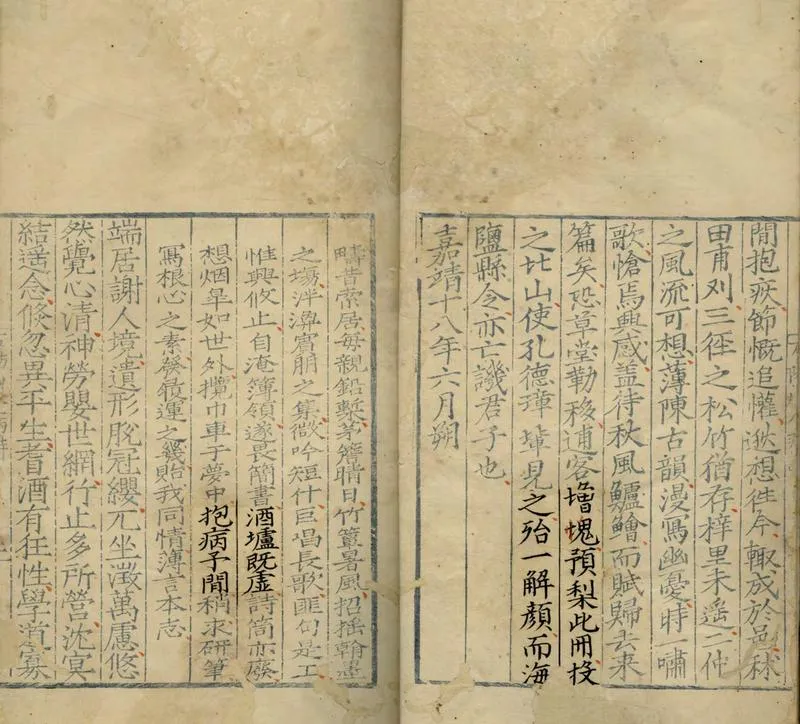 閒抱疾飾慨追懽逖想徃今輙成於邑秫
田甫刈三徑之松竹猶存梓里未遙二仲
之風流可想薄陳古韻漫寫幽憂時一嘯
歌愴焉興感蓋待秋風鱸鱠而賦歸去来
篇矣恐草堂勒移逋客增愧預梨此冊投
之北山使孔德璋輩見之殆一解顏而海
鹽縣令亦亡譏君子也
嘉靖十八年六月朔
疇昔索居毎親鉛槧茅簷晴日竹簟暑風招搖翰墨
之場泮渙賓朋之集微吟短什巨唱長歌匪句是工
惟興攸止自淹簿領遂畏簡書酒壚既虛詩筒亦廢
想烟皐如世外攬巾車于夢中抱病予閒稍求研筆
寫根心之素發負運之譏貽我同情薄言本志
端居謝人境遺形脫冠纓兀坐澂萬慮悠
然覺心清神勞嬰世網行止多所營沈冥
結遥念倐忽異平生耆酒有狂性學道寡